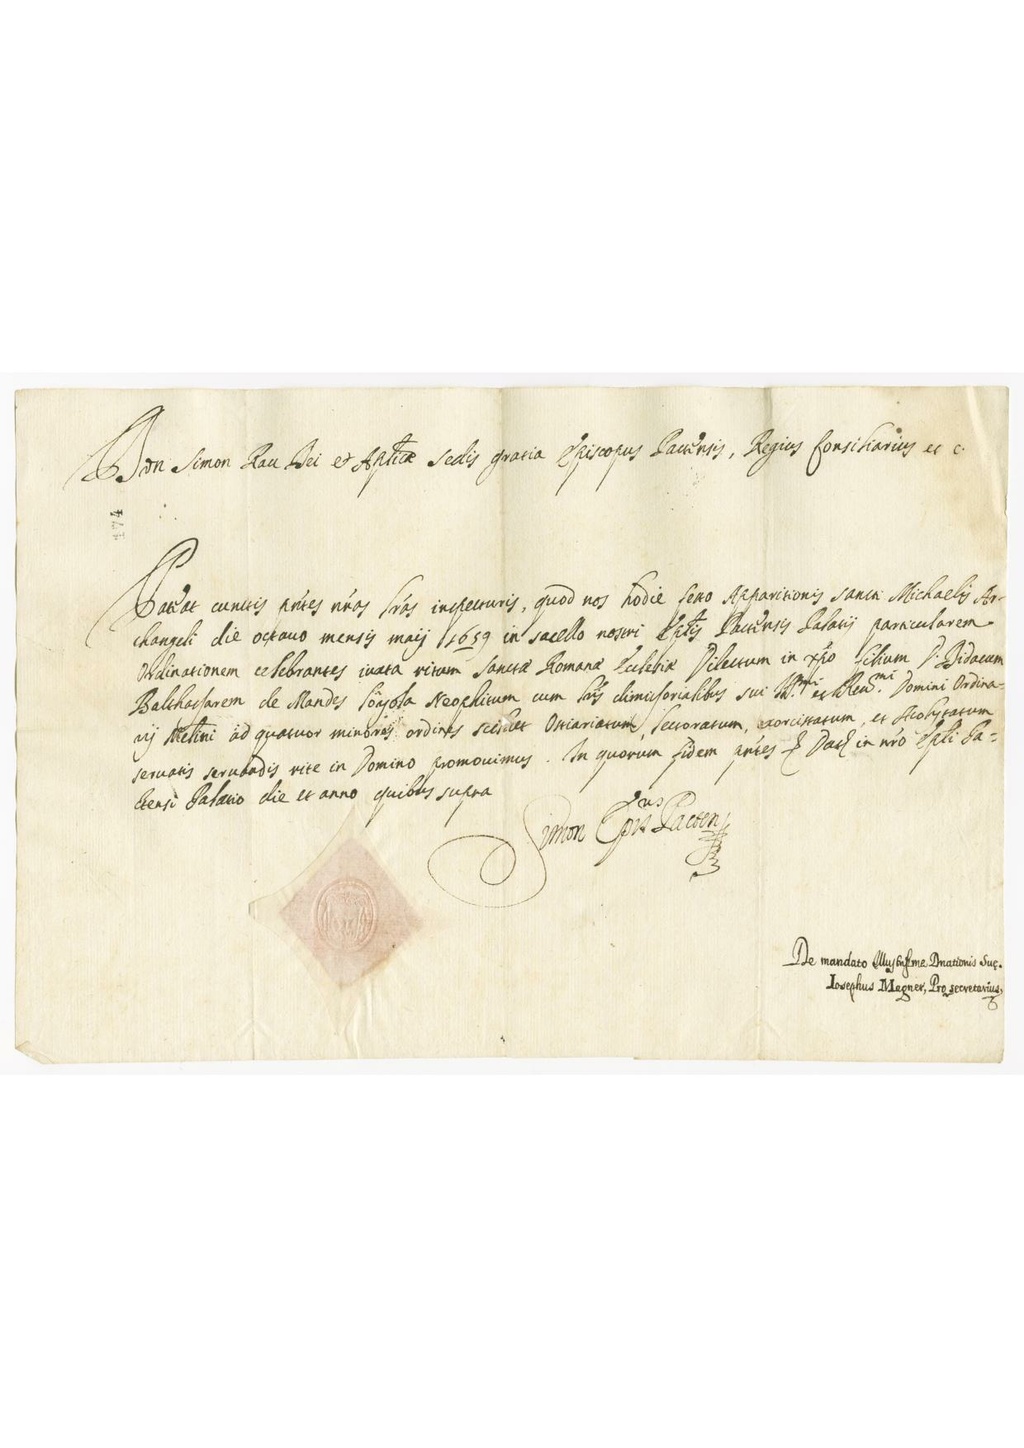 Don Simon Rau Dei et Aplicæ sedis gratia Episcopus Pactensis, Regius Consiliarius et c.
Pateat cunctis pn̄tes nr̄as lr̄as inspecturis, quod nos hodie festo Apparitionis sancti Michaelis Ar-
changeli die octavo mensis maij 1659 in sacello nostri Eplis Pactensis Palatij particularem
Ordinationem celebrantes iuxta ritum sanctæ Romanæ Ecclesiæ Dilectum in xp̄o filium D. Didacum
Balthassarem de Mandes Loÿola Neophitum cum lr̄is dimissorialibus sui Ill.mi et Reu.mi Domini Ordina-
rij Meliti ad quatuor minores ordines scilicet Ostiariatum, Lectoratum, exorcistatum, et Acolytatum
servatis servandis rite in Domino promovimus. In quorum fidem pn̄tes Dat in nr̄o Epli Pa-
ctensi Palatio die et anno quibus supra
Simon Epus Pacten
De mandato Illustrissimæ Dnationis Suę.
Iosephus Magner, Pro secretarius